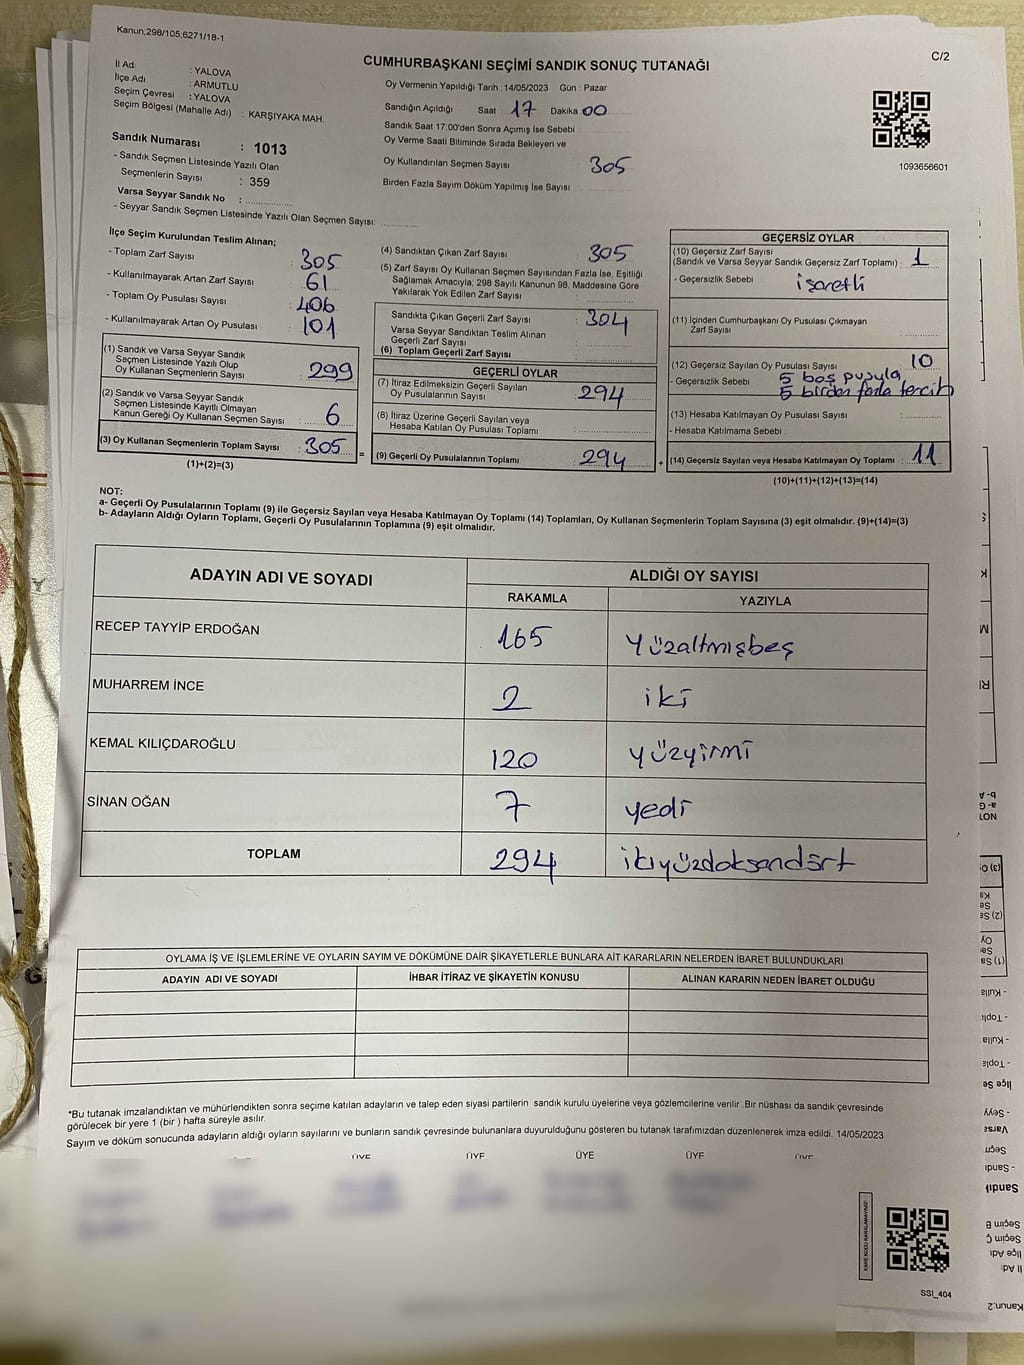 Kanun;298/105;6271/18-1
C/2
CUMHURBAŞKANI SEÇİMİ SANDIK SONUÇ TUTANAĞI
İl Adı : YALOVA
İlçe Adı : ARMUTLU
Seçim Çevresi : YALOVA
Seçim Bölgesi (Mahalle Adı) : KARŞIYAKA MAH.
Sandık Numarası : 1013
- Sandık Seçmen Listesinde Yazılı Olan
Seçmenlerin Sayısı : 359
Varsa Seyyar Sandık No :
- Seyyar Sandık Seçmen Listesinde Yazılı Olan Seçmen Sayısı:
Oy Vermenin Yapıldığı Tarih : 14/05/2023 Gün : Pazar
Sandığın Açıldığı Saat 17 Dakika 00
Sandık Saat 17:00'den Sonra Açımış İse Sebebi
Oy Verme Saati Bitiminde Sırada Bekleyen ve
Oy Kullandırılan Seçmen Sayısı 305
Birden Fazla Sayım Döküm Yapılmış İse Sayısı
1093656601
İlçe Seçim Kurulundan Teslim Alınan;
- Toplam Zarf Sayısı : 305
- Kullanılmayarak Artan Zarf Sayısı : 61
- Toplam Oy Pusulası Sayısı : 406
- Kullanılmayarak Artan Oy Pusulası : 101
(1) Sandık ve Varsa Seyyar Sandık
Seçmen Listesinde Yazılı Olup
Oy Kullanan Seçmenlerin Sayısı : 299
(2) Sandık ve Varsa Seyyar Sandık
Seçmen Listesinde Kayıtlı Olmayan
Kanun Gereği Oy Kullanan Seçmen Sayısı : 6
(3) Oy Kullanan Seçmenlerin Toplam Sayısı : 305
(1)+(2)=(3)
=
(4) Sandıktan Çıkan Zarf Sayısı : 305
(5) Zarf Sayısı Oy Kullanan Seçmen Sayısından Fazla İse, Eşitliği
Sağlamak Amacıyla; 298 Sayılı Kanunun 98. Maddesine Göre
Yakılarak Yok Edilen Zarf Sayısı :
Sandıkta Çıkan Geçerli Zarf Sayısı : 304
Varsa Seyyar Sandıktan Teslim Alınan
Geçerli Zarf Sayısı
(6) Toplam Geçerli Zarf Sayısı
GEÇERLİ OYLAR
(7) İtiraz Edilmeksizin Geçerli Sayılan
Oy Pusulalarının Sayısı : 294
(8) İtiraz Üzerine Geçerli Sayılan veya
Hesaba Katılan Oy Pusulası Toplamı :
(9) Geçerli Oy Pusulalarının Toplamı : 294
+
GEÇERSİZ OYLAR
(10) Geçersiz Zarf Sayısı
(Sandık ve Varsa Seyyar Sandık Geçersiz Zarf Toplamı) : 1
- Geçersizlik Sebebi : işaretli
(11) İçinden Cumhurbaşkanı Oy Pusulası Çıkmayan
Zarf Sayısı :
(12) Geçersiz Sayılan Oy Pusulası Sayısı : 10
- Geçersizlik Sebebi : 5 boş pusula
5 birden fazla tercih
(13) Hesaba Katılmayan Oy Pusulası Sayısı :
- Hesaba Katılmama Sebebi :
(14) Geçersiz Sayılan veya Hesaba Katılmayan Oy Toplamı : 11
(10)+(11)+(12)+(13)=(14)
NOT:
a- Geçerli Oy Pusulalarının Toplamı (9) ile Geçersiz Sayılan veya Hesaba Katılmayan Oy Toplamı (14) Toplamları, Oy Kullanan Seçmenlerin Toplam Sayısına (3) eşit olmalıdır. (9)+(14)=(3)
b- Adayların Aldığı Oyların Toplamı, Geçerli Oy Pusulalarının Toplamına (9) eşit olmalıdır.
ADAYIN ADI VE SOYADI
ALDIĞI OY SAYISI
RAKAMLA YAZIYLA
RECEP TAYYİP ERDOĞAN 165 yüzaltmışbeş
MUHARREM İNCE 2 iki
KEMAL KILIÇDAROĞLU 120 yüzyirmi
SİNAN OĞAN 7 yedi
TOPLAM 294 ikiyüzdoksandört
OYLAMA İŞ VE İŞLEMLERİNE VE OYLARIN SAYIM VE DÖKÜMÜNE DAİR ŞİKAYETLERLE BUNLARA AİT KARARLARIN NELERDEN İBARET BULUNDUKLARI
ADAYIN ADI VE SOYADI İHBAR İTİRAZ VE ŞİKAYETİN KONUSU ALINAN KARARIN NEDEN İBARET OLDUĞU
*Bu tutanak imzalandıktan ve mühürlendikten sonra seçime katılan adayların ve talep eden siyasi partilerin sandık kurulu üyelerine veya gözlemcilerine verilir .Bir nüshası da sandık çevresinde
görülecek bir yere 1 (bir ) hafta süreyle asılır.
Sayım ve döküm sonucunda adayların aldığı oyların sayılarını ve bunların sandık çevresinde bulunanlara duyurulduğunu gösteren bu tutanak tarafımızdan düzenlenerek imza edildi. 14/05/2023
ÜYE ÜYE ÜYE ÜYE ÜYE
KARE KODU KARALAMAYINIZ!
SSİ_404